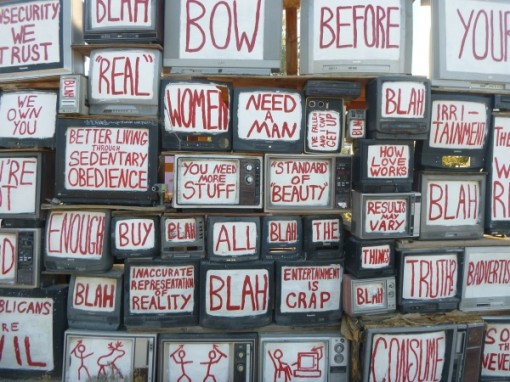 INSECURITY
WE
TRUST
BLAH
BOW
BEFORE
YOUR
"REAL"
BLAH
WE
OWN
YOU
WOMEN
NEED A
MAN
I'VE FALLEN
AND I
GET
UP
BLAH
BLAH
IRRI-
TAINMENT
BETTER LIVING
THROUGH
SEDENTARY
OBEDIENCE
YOU NEED
MORE
STUFF
"STANDARD
OF
"BEAUTY"
HOW
LOVE
WORKS
BLAH
RESULTS
MAY
VARY
ENOUGH
BUY
BLAH
ALL
BLAH
THE
THINGS
BLAH
INACCURATE
REPRESENTATION
OF
REALITY
BLAH
ENTERTAINMENT
IS
CRAP
BLAH
TRUTH
BADVERTIS
PUBLICANS
RE
VIL
CONSUME
SO
THE
NEVE